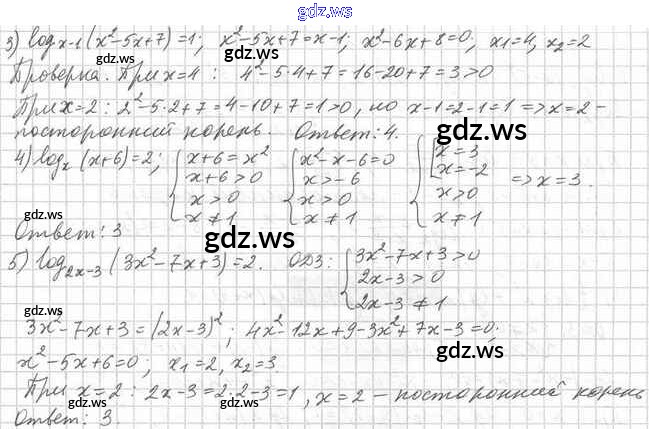 gdz.ws
3) log_{x-1}(x²-5x+7)=1; x²-5x+7=x-1; x²-6x+8=0; x₁=4, x₂=2
gdz.ws gdz.ws
Проверка. При x=4 : 4²-5·4+7=16-20+7=3>0
При x=2: 2²-5·2+7=4-10+7=1>0, но x-1=2-1=1 => x=2 -
посторонний корень. Ответ: 4. gdz.ws
4) log_x (x+6)=2; { x+6=x² { x²-x-6=0 { [ x=3
x+6>0 x>-6 x=-2 => x=3.
x>0 x>0 x>0
x≠1 x≠1 x≠1
gdz.ws
Ответ: 3 gdz.ws
5) log_{2x-3}(3x²-7x+3)=2. ОДЗ: { 3x²-7x+3>0
2x-3>0
2x-3≠1
3x²-7x+3=(2x-3)²; 4x²-12x+9-3x²+7x-3=0;
gdz.ws
x²-5x+6=0; x₁=2, x₂=3
При x=2: 2x-3=2·2-3=1, x=2 - посторонний корень
gdz.ws gdz.ws
Ответ: 3.